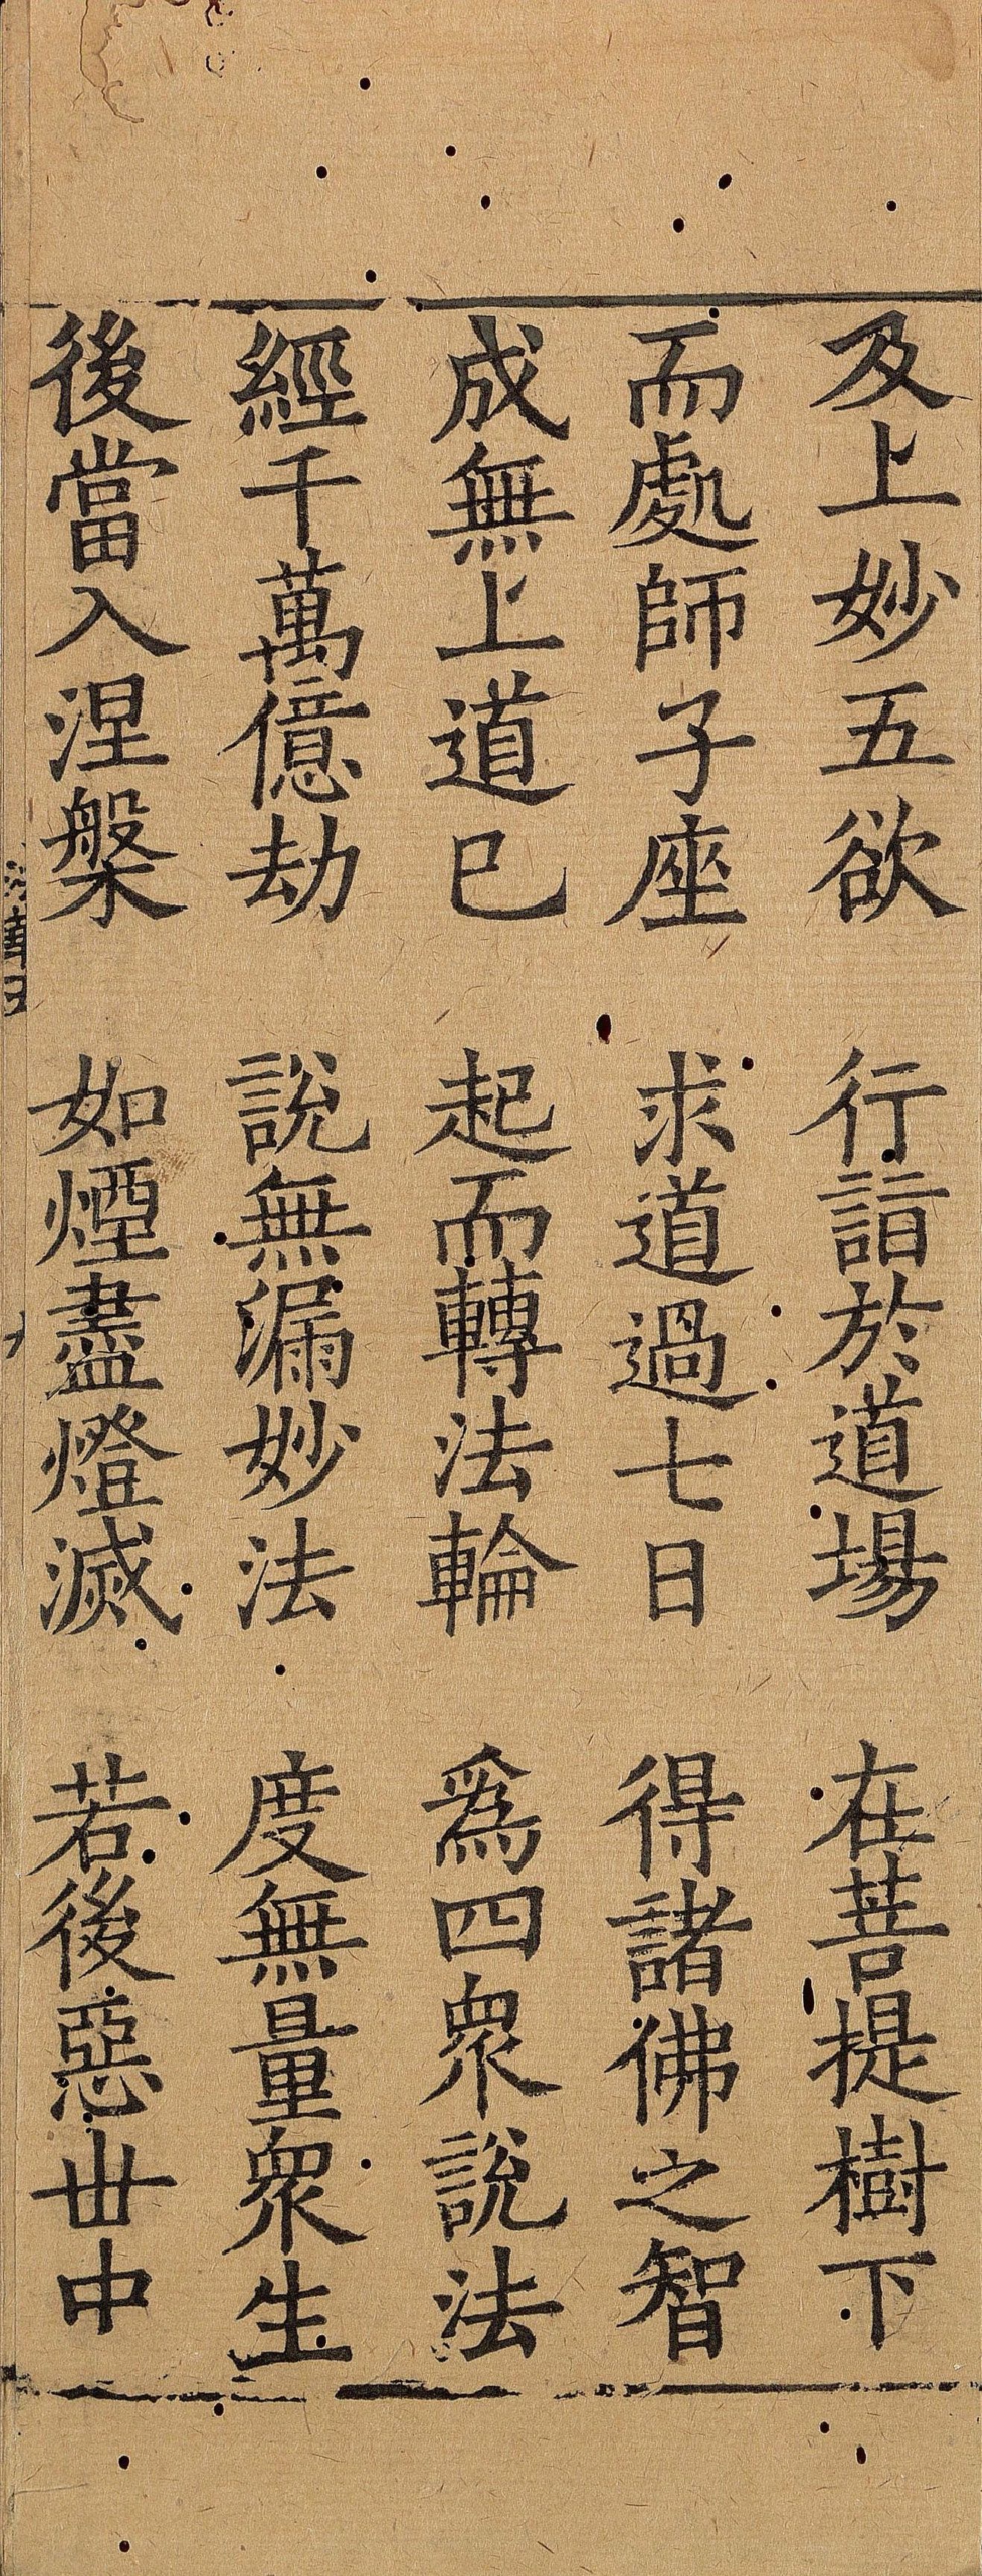 及上妙五欲　行詣於道場　在菩提樹下
而處師子座　求道過七日　得諸佛之智
成無上道已　起而轉法輪　爲四衆說法
經千萬億劫　說無漏妙法　度無量衆生
後當入涅槃　如煙盡燈滅　若後惡世中